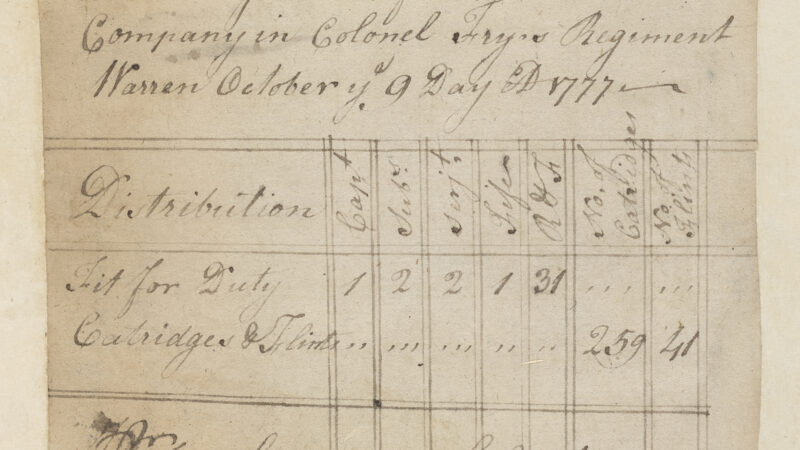 Company in Colonel Frys Regiment
Warren October ye 9 Day AD 1777
Distribution Capt Subs Serjts Fife R & F No. of Catridges No. of Flints
Fit for Duty 1 2 2 1 31 ... ...
Catridges & Flints ... ... ... ... ... 259 41